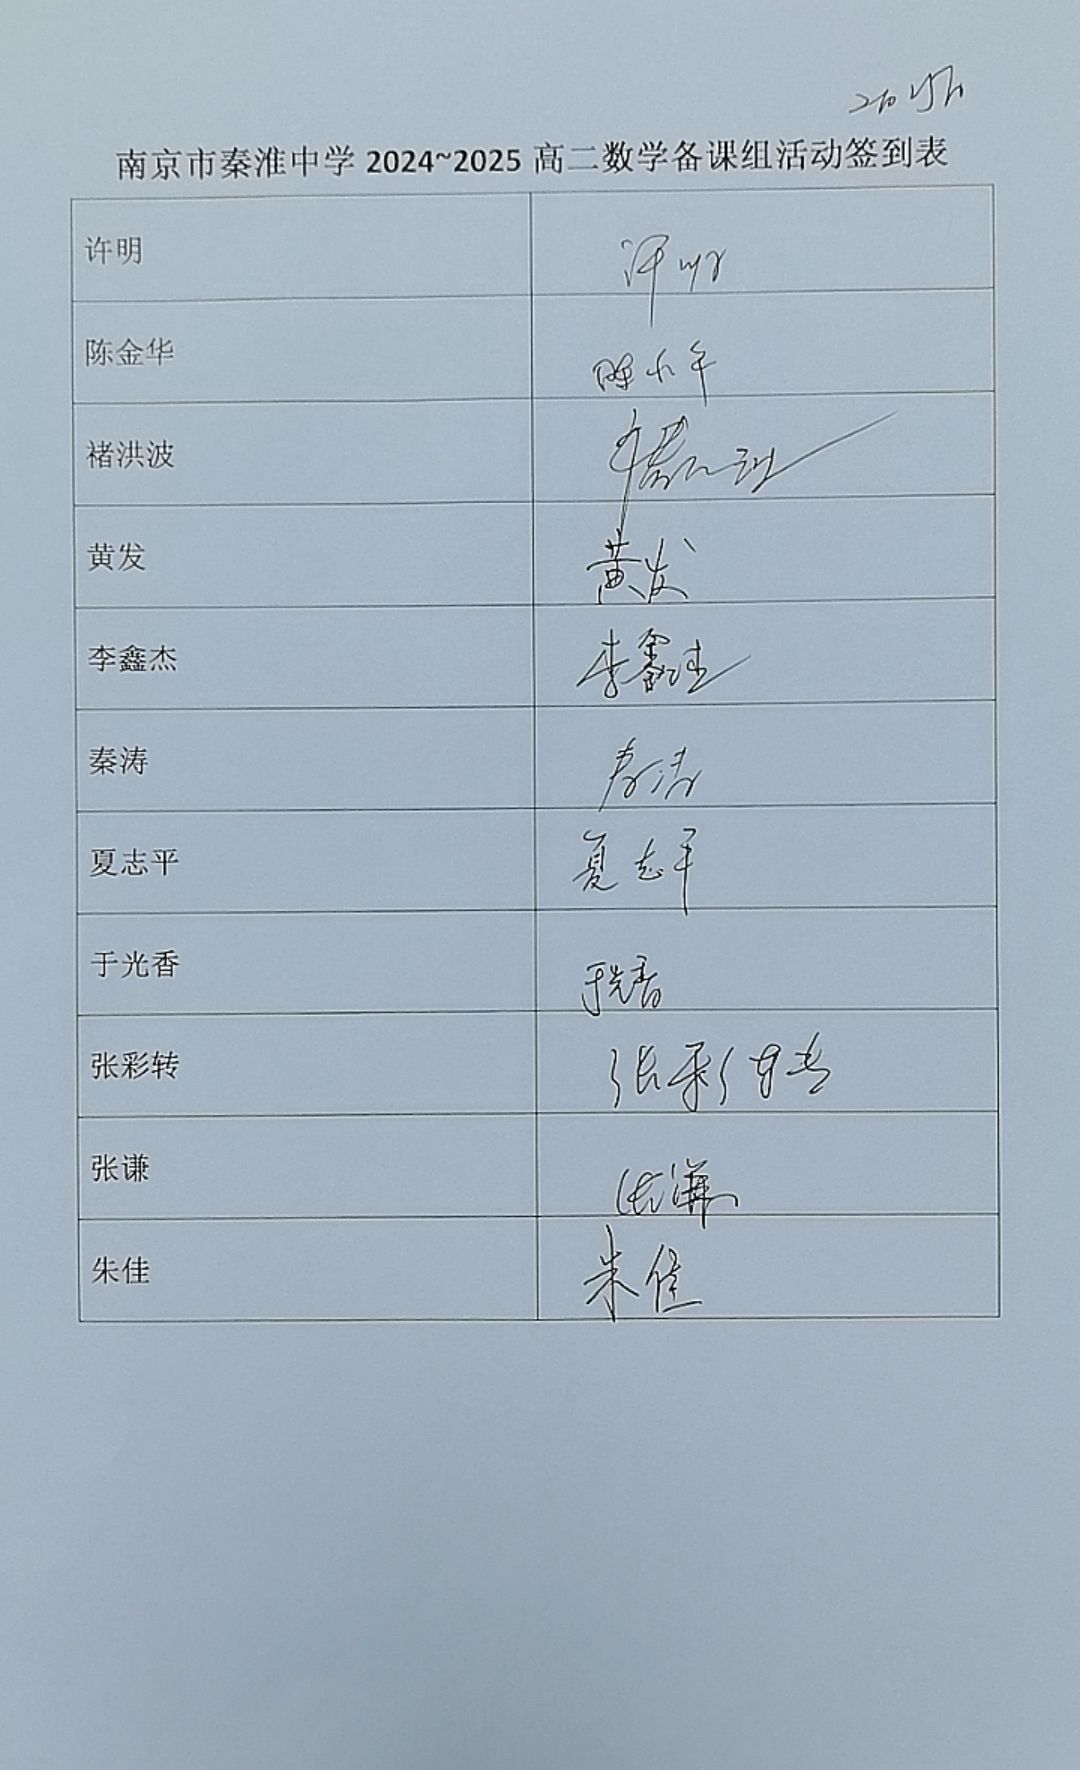 南京市秦淮中学 2024~2025 高二数学备课组活动签到表
许明
陈金华
褚洪波
黄发 黄发
李鑫杰 李鑫杰
秦涛 秦涛
夏志平 夏志平
于光香 于光香
张彩转 张彩转
张谦 张谦
朱佳 朱佳